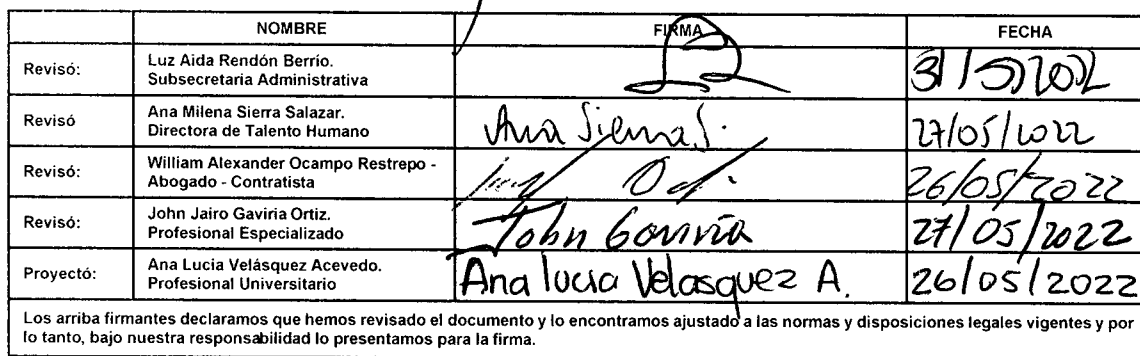 NOMBRE FIRMA FECHA
Revisó: Luz Aida Rendón Berrío.
Subsecretaria Administrativa
31/5/2022
Revisó Ana Milena Sierra Salazar.
Directora de Talento Humano
Ana Sierra S. 27/05/2022
Revisó: William Alexander Ocampo Restrepo -
Abogado - Contratista
26/05/2022
Revisó: John Jairo Gaviria Ortiz.
Profesional Especializado
John Gaviria 27/05/2022
Proyectó: Ana Lucia Velásquez Acevedo.
Profesional Universitario
Ana lucia Velasquez A. 26/05/2022
Los arriba firmantes declaramos que hemos revisado el documento y lo encontramos ajustado a las normas y disposiciones legales vigentes y por
lo tanto, bajo nuestra responsabilidad lo presentamos para la firma.